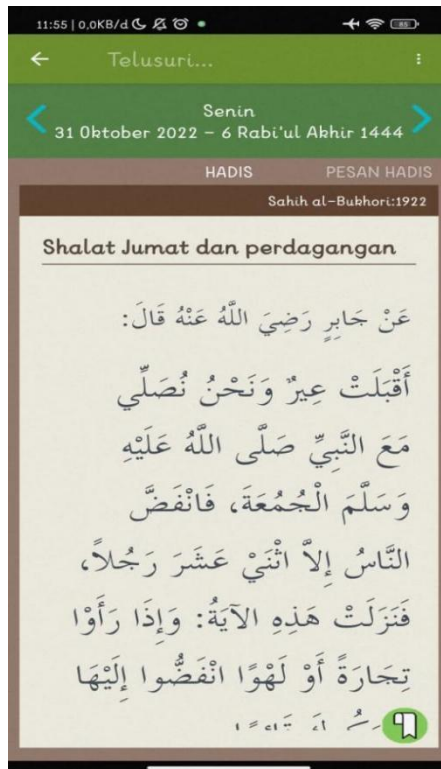 11:55 | 0,0KB/d
85
Telusuri...
Senin
31 Oktober 2022 – 6 Rabi'ul Akhir 1444
HADIS PESAN HADIS
Sahih al-Bukhori:1922
Shalat Jumat dan perdagangan
عَنْ جَابِرٍ رَضِيَ اللَّهُ عَنْهُ قَالَ:
أَقْبَلَتْ عِيرٌ وَنَحْنُ نُصَلِّي
مَعَ النَّبِيِّ صَلَّى اللَّهُ عَلَيْهِ
وَسَلَّمَ الْجُمُعَةَ، فَانْفَضَّ
النَّاسُ إِلاَّ اثْنَيْ عَشَرَ رَجُلاً،
فَنَزَلَتْ هَذِهِ الآيَةُ: وَإِذَا رَأَوْا
تِجَارَةً أَوْ لَهْوًا انْفَضُّوا إِلَيْهَا